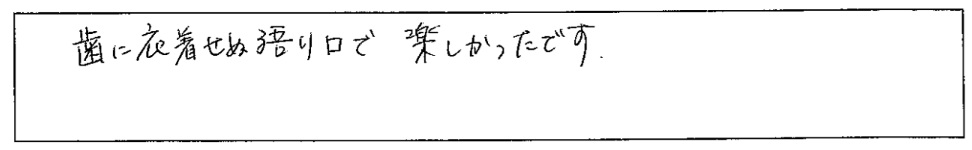 歯に衣着せぬ語り口で 楽しかったです.